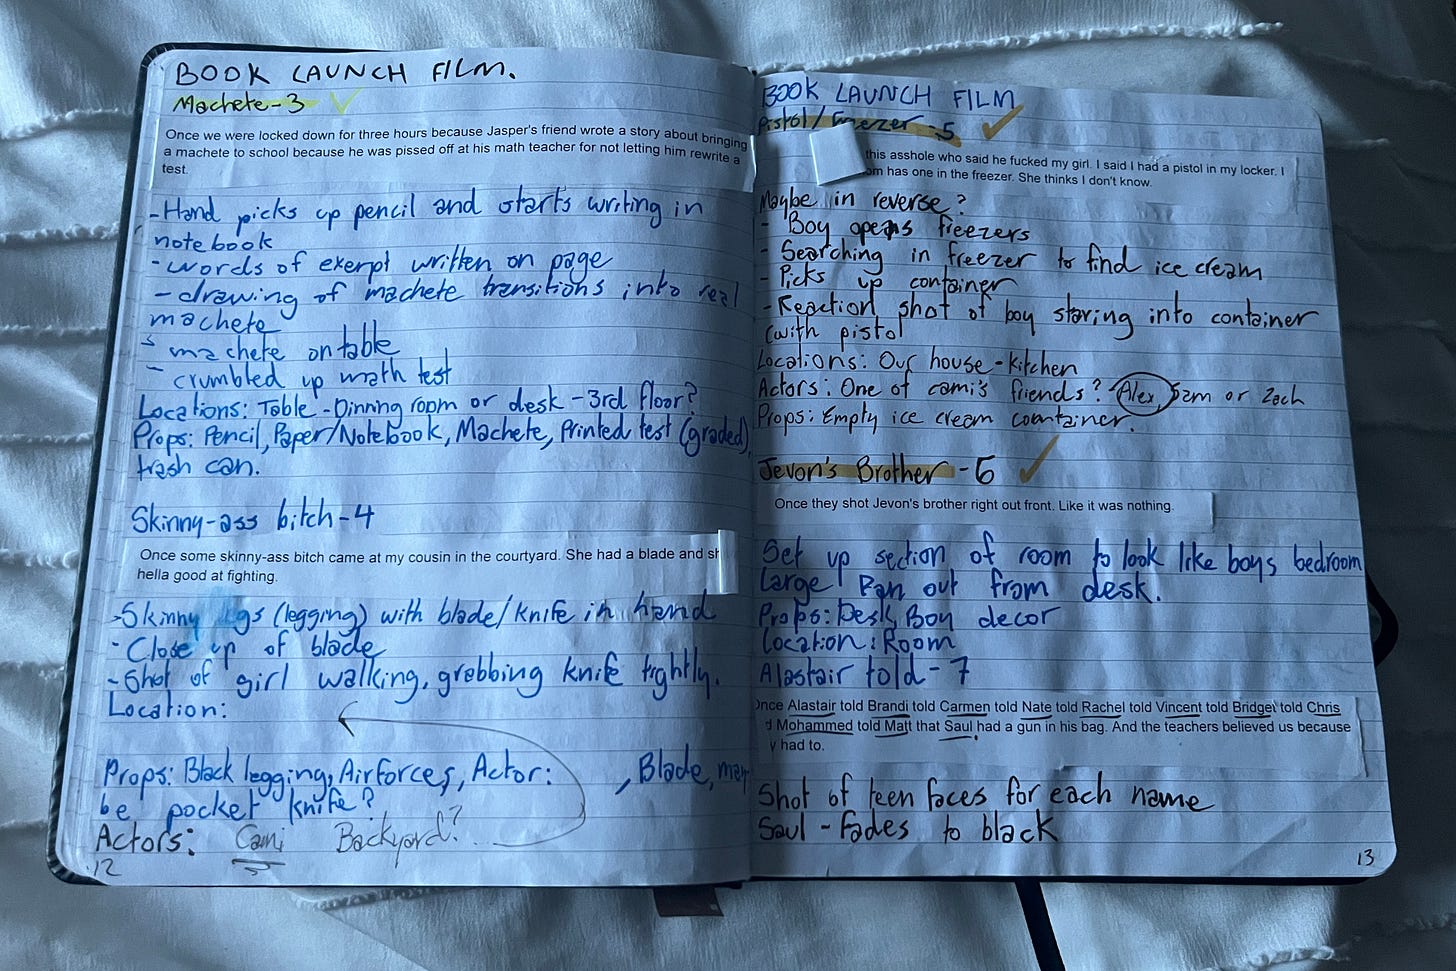 BOOK LAUNCH FILM.
Machete-3
Once we were locked down for three hours because Jasper's friend wrote a story about bringing
a machete to school because he was pissed off at his math teacher for not letting him rewrite a
test.
-Hand picks up pencil and starts writing in
notebook
-words of exerpt written on page
-drawing of machete transitions into real
machete
- machete on table
- crumbled up math test
Locations: Table-Dinning room or desk-3rd floor?
Props: Pencil, Paper/Notebook, Machete, Printed test (graded),
trash can.
Skinny-ass bitch-4
Once some skinny-ass bitch came at my cousin in the courtyard. She had a blade and
hella good at fighting.
-Skinny legs (legging) with blade/knife in hand
-Close up of blade
-Shot of girl walking, grabbing knife tightly.
Location:
Props: Black legging, Airforces, Actor: , Blade, may
be pocket knife?
Actors: Cami Backyard?
12
BOOK LAUNCH FILM
Pistol/Freezer-5
this asshole who said he fucked my girl. I said I had a pistol in my locker. I
om has one in the freezer. She thinks I don't know.
Maybe in reverse?
- Boy opens freezers
- Searching in freezer to find ice cream
- Picks up container
-Reaction shot of boy staring into container
(with pistol
Locations: Our house-kitchen
Actors: One of cami's friends? Alex, Sam or Zach
Props: Empty ice cream container.
Jevon's Brother-6
Once they shot Jevon's brother right out front. Like it was nothing.
Set up section of room to look like boys bedroom
Large Pan out from desk.
Props: Desk, Boy decor
Location: Room
Alastair told-7
Once Alastair told Brandi told Carmen told Nate told Rachel told Vincent told Bridget told Chris
d Mohammed told Matt that Saul had a gun in his bag. And the teachers believed us because
y had to.
Shot of teen faces for each name
Saul-fades to black
13